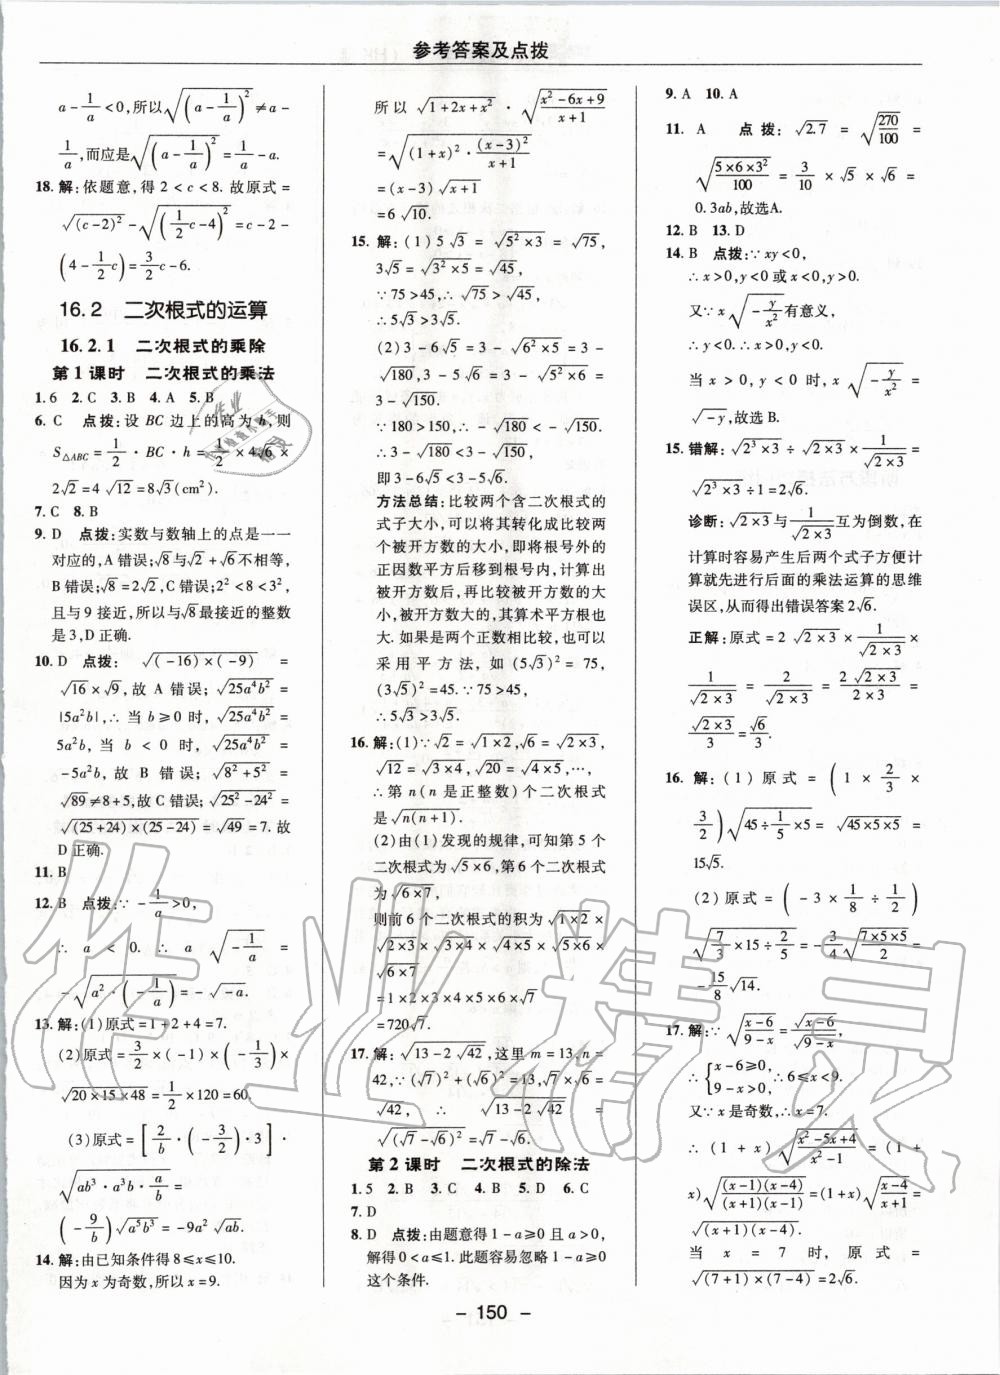 参考答案及点拨
a-1/a<0,所以√(a-1/a)²≠a-
1/a,而应是√(a-1/a)²=1/a-a.
18.解:依题意,得2<c<8.故原式=
√(c-2)²-√(1/2c-4)²=c-2-
(4-1/2c)=3/2c-6.
16.2 二次根式的运算
16.2.1 二次根式的乘除
第1课时 二次根式的乘法
1.6 2.C 3.B 4.A 5.B
6.C 点拨:设BC边上的高为h,则
S△ABC=1/2·BC·h=1/2×4√6×
2√2=4√12=8√3(cm²).
7.C 8.B
9.D 点拨:实数与数轴上的点是一一
对应的,A错误;√8与√6不相等,
B错误;√8=2√2,C错误;∵8<9,
且与9接近,所以与√8最接近的整数
是3,D正确.
10.D 点拨:√(-16)×(-9)=
√16×√9,故A错误;√25a⁴b²=
|5a²b|,∴当b≥0时,√25a⁴b²=
5a²b,当b<0时,√25a⁴b²=
-5a²b,故B错误;√8²+5²=
√89≠8+5,故C错误;√25²-24²=
√(25+24)×(25-24)=√49=7.故
D正确.
11.B
12.B 点拨:∵-1/a>0,
∴a<0.∴a√-1/a=
-√a²·(-1/a)=-√-a.
13.解:(1)原式=1+2+4=7.
(2)原式=3/2×(-1)×(-1/3)×
√20×15×48=1/2×120=60.
(3)原式=[2/b·(-3/2)·3]·
√ab³·a³b·a/b=
(-9/b)√a⁵b³=-9a²√ab.
14.解:由已知条件得8≤x≤10.
因为x为奇数,所以x=9.
所以√1+2x+x²·√(x²-6x+9)/(x+1)
=√(1+x)²·(x-3)²/(x+1)
=(x-3)√x+1
=6√10.
15.解:(1)5√3=√5²×3=√75,
3√5=√3²×5=√45,
∵75>45,∴√75>√45,
∴5√3>3√5.
(2)3-6√5=3-√6²×5=3-
√180,3-5√6=3-√5²×6=
3-√150.
∵180>150,∴-√180<-√150,
∴3-√180<3-√150,
即3-6√5<3-5√6.
方法总结:比较两个含二次根式的
式子大小,可以将其转化成比较两
个被开方数的大小,即将根号外的
正因数平方后移到根号内,计算出
被开方数后,再比较被开方数的大
小,被开方数大的,其算术平方根也
大.如果是两个正数相比较,也可以
采用平方法,如(5√3)²=75,
(3√5)²=45.∵75>45,
∴5√3>3√5.
16.解:(1)∵√2=√1×2,√6=√2×3,
√12=√3×4,√20=√4×5,…,
∴第n(n是正整数)个二次根式
是√n(n+1).
(2)由(1)发现的规律,可知第5个
二次根式为√5×6,第6个二次根式
为√6×7,
则前6个二次根式的积为√1×2×
√2×3×√3×4×√4×5×√5×6×
√6×7
=1×2×3×4×5×6×√7
=720√7.
17.解:√13-2√42,这里m=13,n=
42,∵(√7)²+(√6)²=13,√7×√6=
√42,∴√13-2√42=
√(√7-√6)²=√7-√6.
第2课时 二次根式的除法
1.5 2.B 3.C 4.B 5.D 6.C
7.D
8.D 点拨:由题意得1-a≥0且a>0,
解得0<a≤1.此题容易忽略1-a≥0
这个条件.
9.A 10.A
11.A 点拨:√2.7=√270/100=
√(5×6×3²)/100=3/10×√5×√6=
0.3ab,故选A.
12.B 13.D
14.B 点拨:∵xy<0,
∴x>0,y<0或x<0,y>0.
又∵x√-y/x²有意义,
∴y<0.∴x>0,y<0.
当x>0,y<0时,x√-y/x²=
√-y,故选B.
15.错解:√2³×3÷√2×3×1/√2×3=
√2³×3÷1=2√6.
诊断:√2×3与1/√2×3互为倒数,在
计算时容易产生后两个式子方便计
算就先进行后面的乘法运算的思维
误区,从而得出错误答案2√6.
正解:原式=2√2×3×1/√2×3×
1/√2×3=2/√2×3=2√2×3/2×3=
√2×3/3=√6/3.
16.解:(1)原式=(1×2/3×
3/2)√45÷1/5×5=√45×5×5=
15√5.
(2)原式=(-3×1/8÷1/2)
√7/3×15÷2/5=-3/4√(7×5×5×5)/2=
-15/8√14.
17.解:∵√(x-6)/(9-x)=√x-6/√9-x,
∴{x-6≥0, 9-x>0,∴6≤x<9.
又∵x是奇数,∴x=7.
∴(1+x)√(x²-5x+4)/(x²-1)=(1+
x)√(x-1)(x-4)/(x+1)(x-1)=(1+x)√(x-4)/(x+1)=
√(x+1)(x-4).
当x=7时,原式=
√(7+1)×(7-4)=2√6.
- 150 -
作业精灵